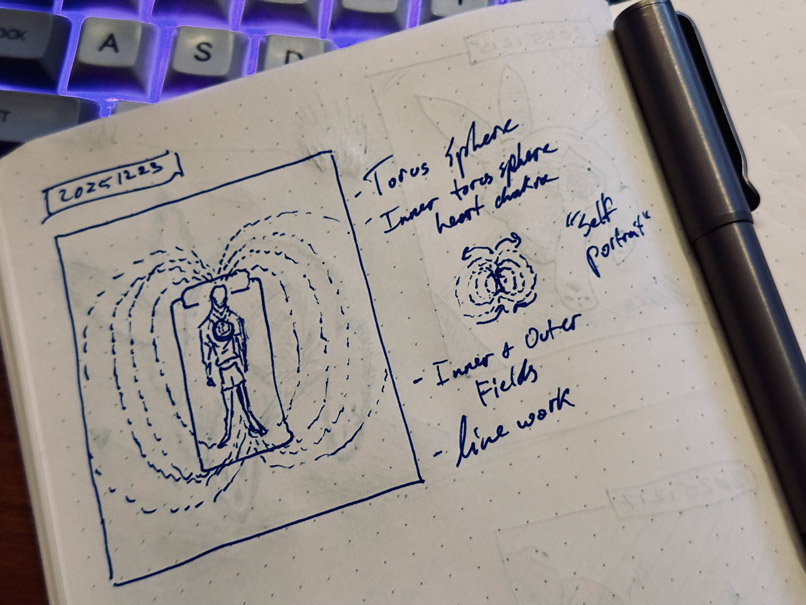 A
S
D
20251223
- Torus Sphere
- Inner torus sphere
heart chakra
"self
portrait"
- Inner & Outer
Fields
- line work